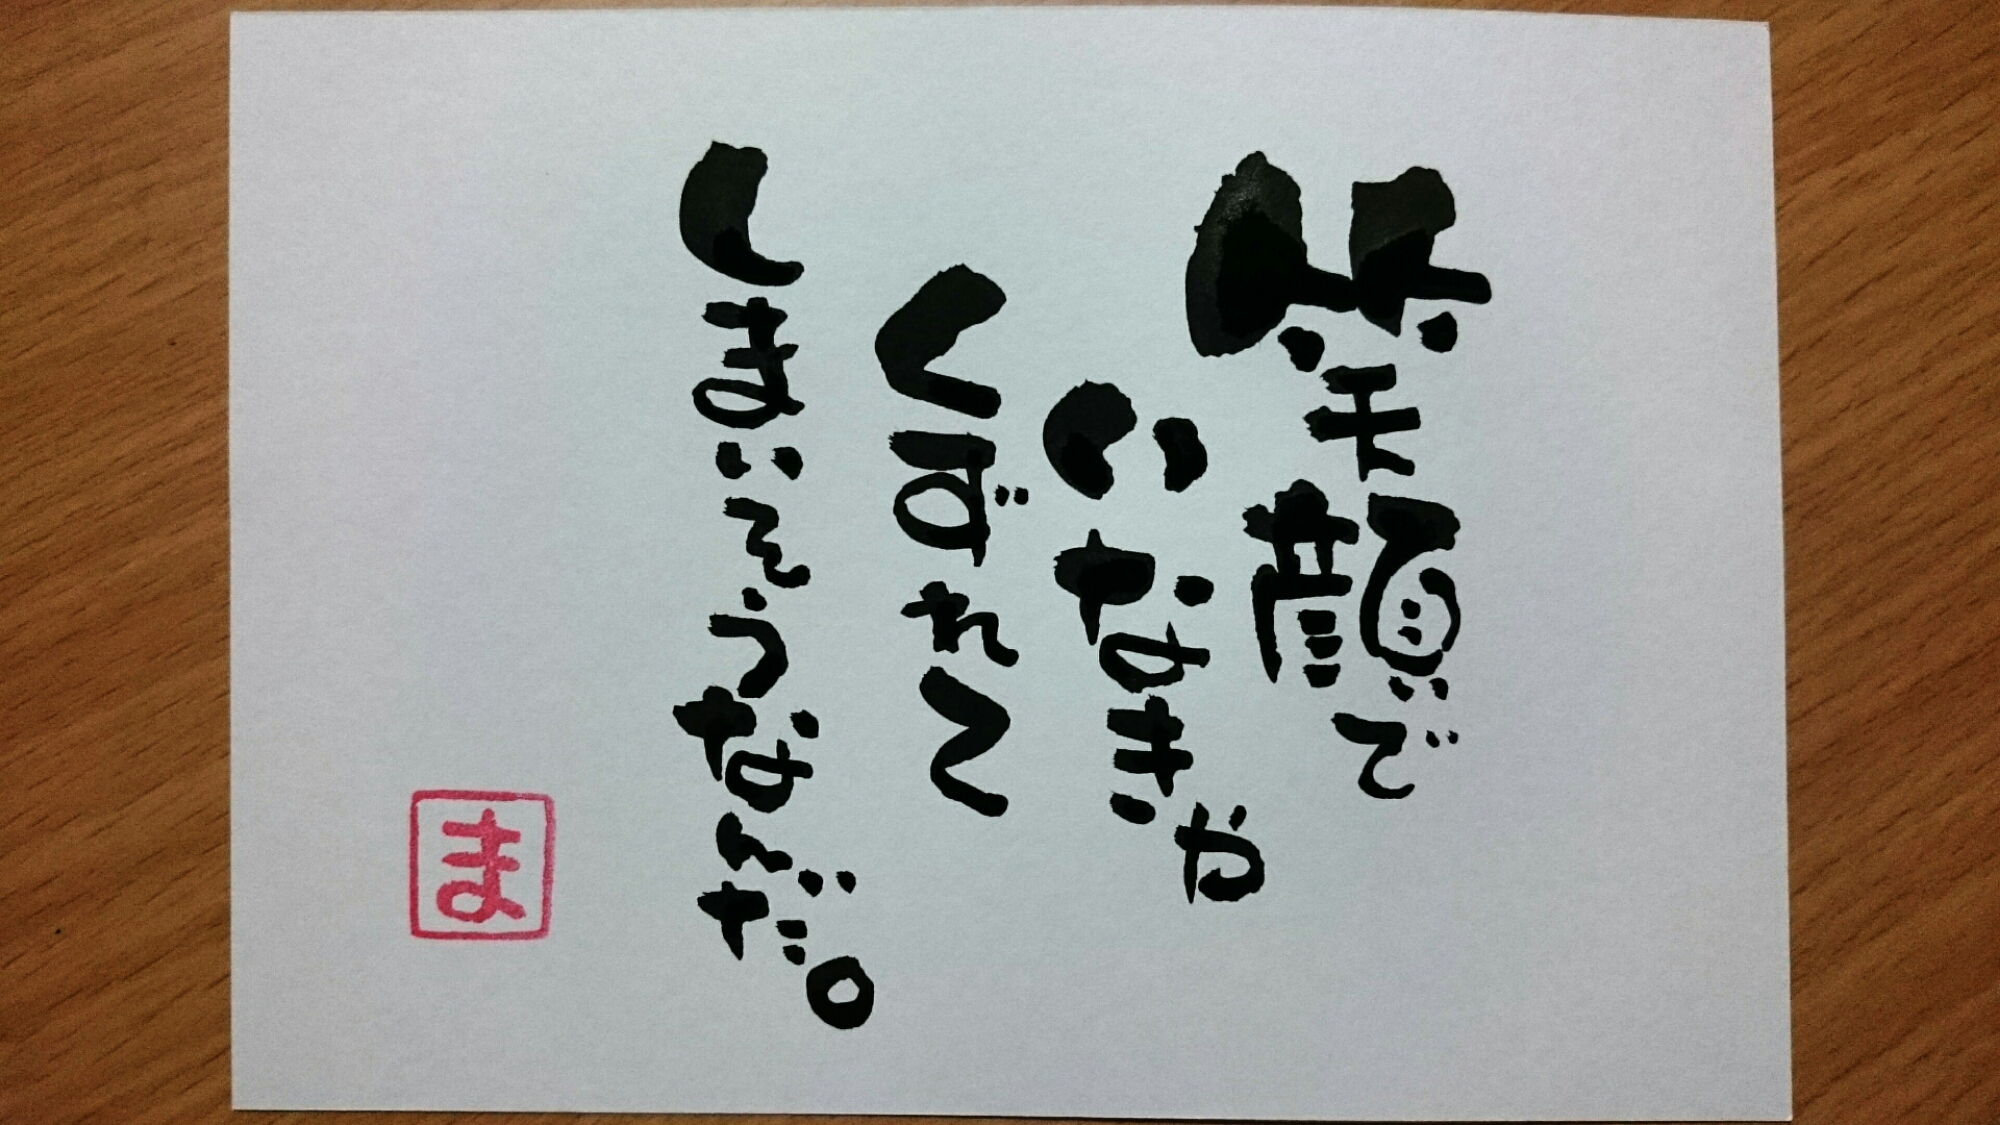 笑顔で
いなきゃ
くずれて
しまいそうなんだ。
ま